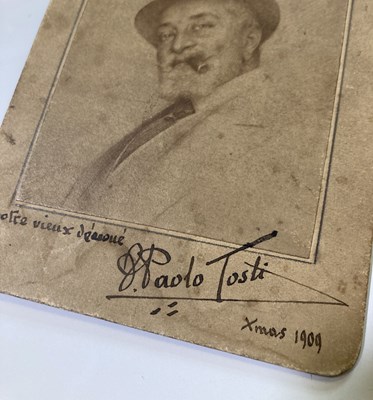 otre vieux dévoué
F. Paolo Tosti
Xmas 1909